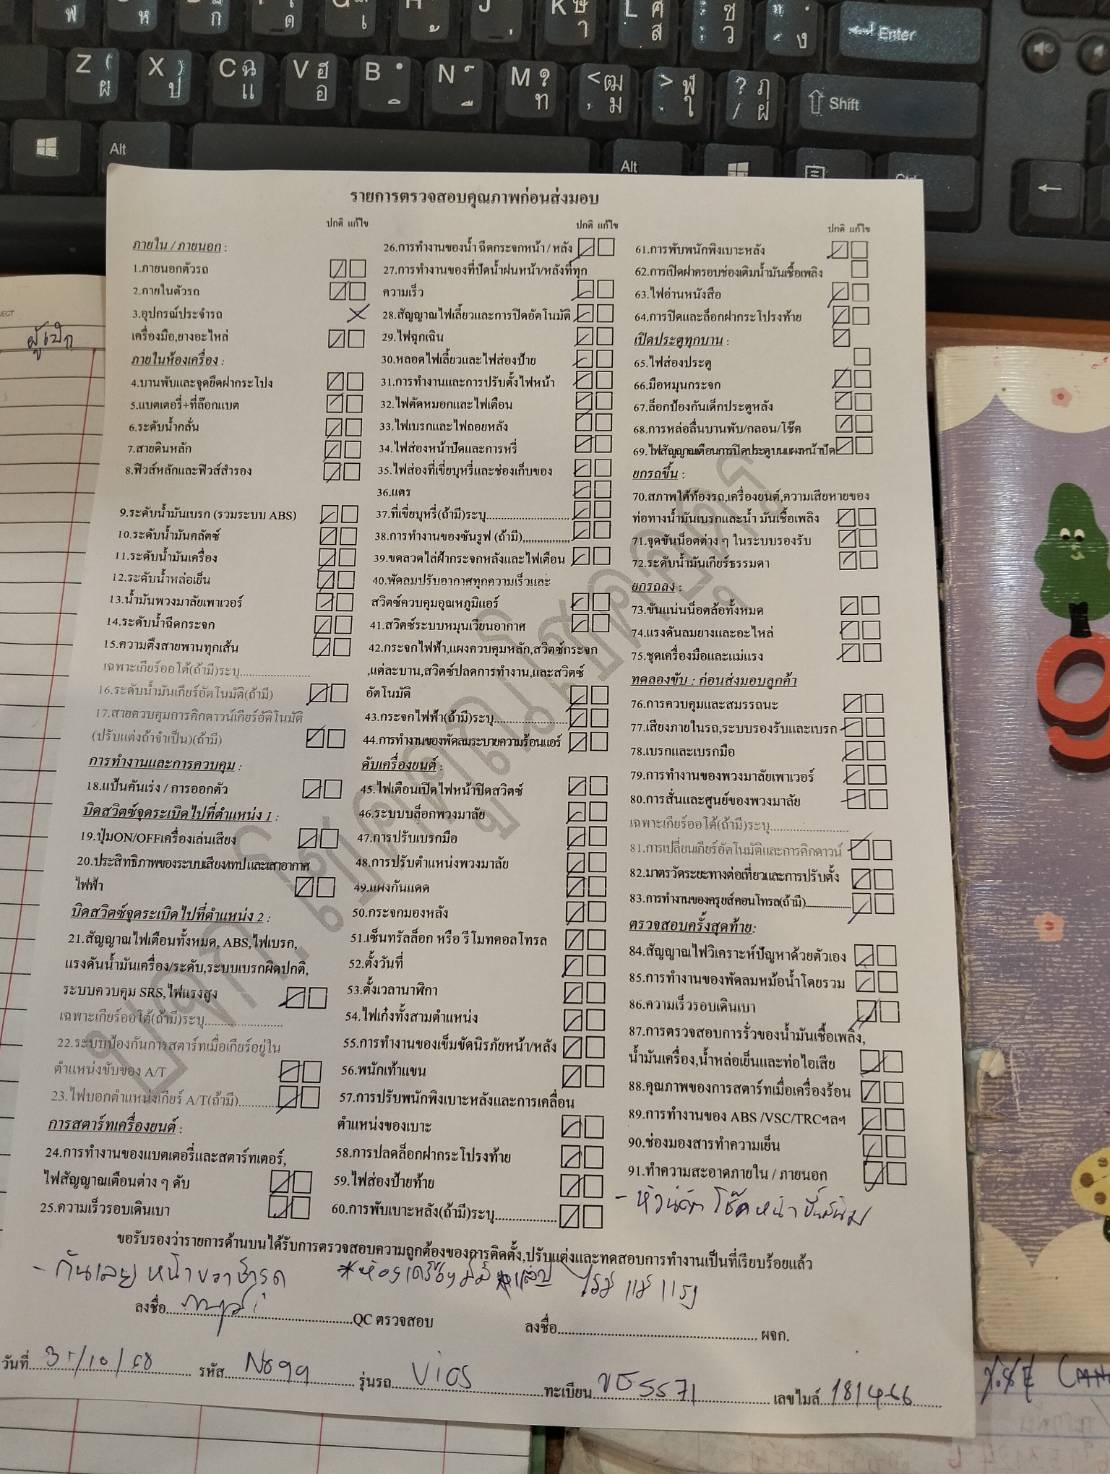 Enter
Z ผ
X ป
C ฉ แ
V ฮ อ
B
N
M ? ท
< ฒ , ม
> ฬ . ใ
? ฦ / ฝ
Shift
Alt
Alt
ผู้เบิก
รายการตรวจสอบคุณภาพก่อนส่งมอบ
ปกติ แก้ไข
ภายใน / ภายนอก :
1.ภายนอกตัวรถ
2.ภายในตัวรถ
3.อุปกรณ์ประจำรถ
เครื่องมือ,ยางอะไหล่
ภายในห้องเครื่อง :
4.บานพับและจุดยึดฝากระโปง
5.แบตเตอรี่+ที่ล๊อกแบต
6.ระดับน้ำกลั่น
7.สายดินหลัก
8.ฟิวส์หลักและฟิวส์สำรอง
9.ระดับน้ำมันเบรก (รวมระบบ ABS)
10.ระดับน้ำมันคลัตซ์
11.ระดับน้ำมันเครื่อง
12.ระดับน้ำหล่อเย็น
13.น้ำมันพวงมาลัยเพาเวอร์
14.ระดับน้ำฉีดกระจก
15.ความตึงสายพานทุกเส้น
เฉพาะเกียร์ออโต้(ถ้ามี)ระบุ
16.ระดับน้ำมันเกียร์อัตโนมัติ(ถ้ามี)
17.สายควบคุมการคิกดาวน์เกียร์อัติโนมัติ
(ปรับแต่งถ้าจำเป็น)(ถ้ามี)
การทำงานและการควบคุม :
18.แป้นคันเร่ง / การออกตัว
บิดสวิตซ์จุดระเบิดไปที่ตำแหน่ง 1 :
19.ปุ่มON/OFFเครื่องเล่นเสียง
20.ประสิทธิภาพของระบบเสียง/เทป และเสาอากาศ
ไฟฟ้า
บิดสวิตซ์จุดระเบิดไปที่ตำแหน่ง 2 :
21.สัญญาณไฟเตือนทั้งหมด, ABS,ไฟเบรก,
แรงดันน้ำมันเครื่อง/ระดับ,ระบบเบรกผิดปกติ,
ระบบควบคุม SRS,ไฟแรงสูง
เฉพาะเกียร์ออโต้(ถ้ามี)ระบุ
22.ระบบป้องกันการสตาร์ทเมื่อเกียร์อยู่ใน
ตำแหน่งขับของ A/T
23.ไฟบอกตำแหน่งเกียร์ A/T(ถ้ามี)
การสตาร์ทเครื่องยนต์ :
24.การทำงานของแบตเตอรี่และสตาร์ทเตอร์,
ไฟสัญญาณเตือนต่าง ๆ ดับ
25.ความเร็วรอบเดินเบา
ปกติ แก้ไข
26.การทำงานของน้ำ ฉีดกระจกหน้า / หลัง
27.การทำงานของที่ปัดน้ำฝนหน้า/หลังที่ทุก
ความเร็ว
28.สัญญาณไฟเลี้ยวและการปิดอัตโนมัติ
29.ไฟฉุกเฉิน
30.หลอดไฟเลี้ยวและไฟส่องป้าย
31.การทำงานและการปรับตั้งไฟหน้า
32.ไฟตัดหมอกและไฟเตือน
33.ไฟเบรกและไฟถอยหลัง
34.ไฟส่องหน้าปัดและการหรี่
35.ไฟส่องที่เขี่ยบุหรี่และช่องเก็บของ
36.แตร
37.ที่เขี่ยบุหรี่(ถ้ามี)ระบุ
38.การทำงานของซันรูฟ (ถ้ามี)
39.ขดลวดไล่ฝ้ากระจกหลังและไฟเตือน
40.พัดลมปรับอากาศทุกความเร็วและ
สวิตซ์ควบคุมอุณหภูมิแอร์
41.สวิตซ์ระบบหมุนเวียนอากาศ
42.กระจกไฟฟ้า,แผงควบคุมหลัก,สวิตซ์กระจก
,แต่ละบาน,สวิตซ์ปลดการทำงาน,และสวิตซ์
อัตโนมัติ
43.กระจกไฟฟ้า(ถ้ามี)ระบุ
44.การทำงานของพัดลมระบายความร้อนแอร์
ดับเครื่องยนต์ :
45.ไฟเตือนเปิดไฟหน้าปิดสวิตซ์
46.ระบบบล็อกพวงมาลัย
47.การปรับเบรกมือ
48.การปรับตำแหน่งพวงมาลัย
49.แผงกันแดด
50.กระจกมองหลัง
51.เซ็นทรัลล็อก หรือ รีโมทคอลโทรล
52.ตั้งวันที่
53.ตั้งเวลานาฬิกา
54.ไฟเก๋งทั้งสามตำแหน่ง
55.การทำงานของเข็มขัดนิรภัยหน้า/หลัง
56.พนักเท้าแขน
57.การปรับพนักพิงเบาะหลังและการเคลื่อน
ตำแหน่งของเบาะ
58.การปลดล็อกฝากระโปรงท้าย
59.ไฟส่องป้ายท้าย
60.การพับเบาะหลัง(ถ้ามี)ระบุ
ปกติ แก้ไข
61.การพับพนักพิงเบาะหลัง
62.การเปิดฝาครอบช่องเติมน้ำมันเชื้อเพลิง
63.ไฟอ่านหนังสือ
64.การปิดและล็อกฝากระโปรงท้าย
เปิดประตูทุกบาน :
65.ไฟส่องประตู
66.มือหมุนกระจก
67.ล็อกป้องกันเด็กประตูหลัง
68.การหล่อลื่นบานพับ/กลอน/โช๊ค
69.ไฟสัญญาณเตือนการปิดประตูบนแผงหน้าปัด
ยกรถขึ้น :
70.สภาพใต้ท้องรถ,เครื่องยนต์,ความเสียหายของ
ท่อทางน้ำมันเบรกและน้ำ มันเชื้อเพลิง
71.จุดขันน็อตต่าง ๆ ในระบบรองรับ
72.ระดับน้ำมันเกียร์ธรรมดา
ยกรถลง :
73.ขันแน่นน็อตล้อทั้งหมด
74.แรงดันลมยางและอะไหล่
75.ชุดเครื่องมือและแม่แรง
ทดลองขับ : ก่อนส่งมอบลูกค้า
76.การควบคุมและสมรรถนะ
77.เสียงภายในรถ,ระบบรองรับและเบรก
78.เบรกและเบรกมือ
79.การทำงานของพวงมาลัยเพาเวอร์
80.การสั่นและศูนย์ของพวงมาลัย
เฉพาะเกียร์ออโต้(ถ้ามี)ระบุ
81.การเปลี่ยนเกียร์อัตโนมัติและการคิกดาวน์
82.มาตรวัดระยะทางต่อเที่ยวและการปรับตั้ง
83.การทำงานของครูยส์คอนโทรล(ถ้ามี)
ตรวจสอบครั้งสุดท้าย:
84.สัญญาณไฟวิเคราะห์ปัญหาด้วยตัวเอง
85.การทำงานของพัดลมหม้อน้ำโดยรวม
86.ความเร็วรอบเดินเบา
87.การตรวจสอบการรั่วของน้ำมันเชื้อเพลิง,
น้ำมันเครื่อง,น้ำหล่อเย็นและท่อไอเสีย
88.คุณภาพของการสตาร์ทเมื่อเครื่องร้อน
89.การทำงานของ ABS /VSC/TRCฯลฯ
90.ช่องมองสารทำความเย็น
91.ทำความสะอาดภายใน / ภายนอก
- หัวน็อต โช๊คหน้า ขึ้นสนิม
ขอรับรองว่ารายการด้านบนได้รับการตรวจสอบความถูกต้องของการติดตั้ง,ปรับแต่งและทดสอบการทำงานเป็นที่เรียบร้อยแล้ว
- กันเลย หน้าขวาชำรุด
ไม่มี แม่แรง
ลงชื่อ QC ตรวจสอบ
ลงชื่อ ผจก.
วันที่ 31/10/68 รหัส N899 รุ่นรถ Vios ทะเบียน ขธ5571 เลขไมล์ 181466